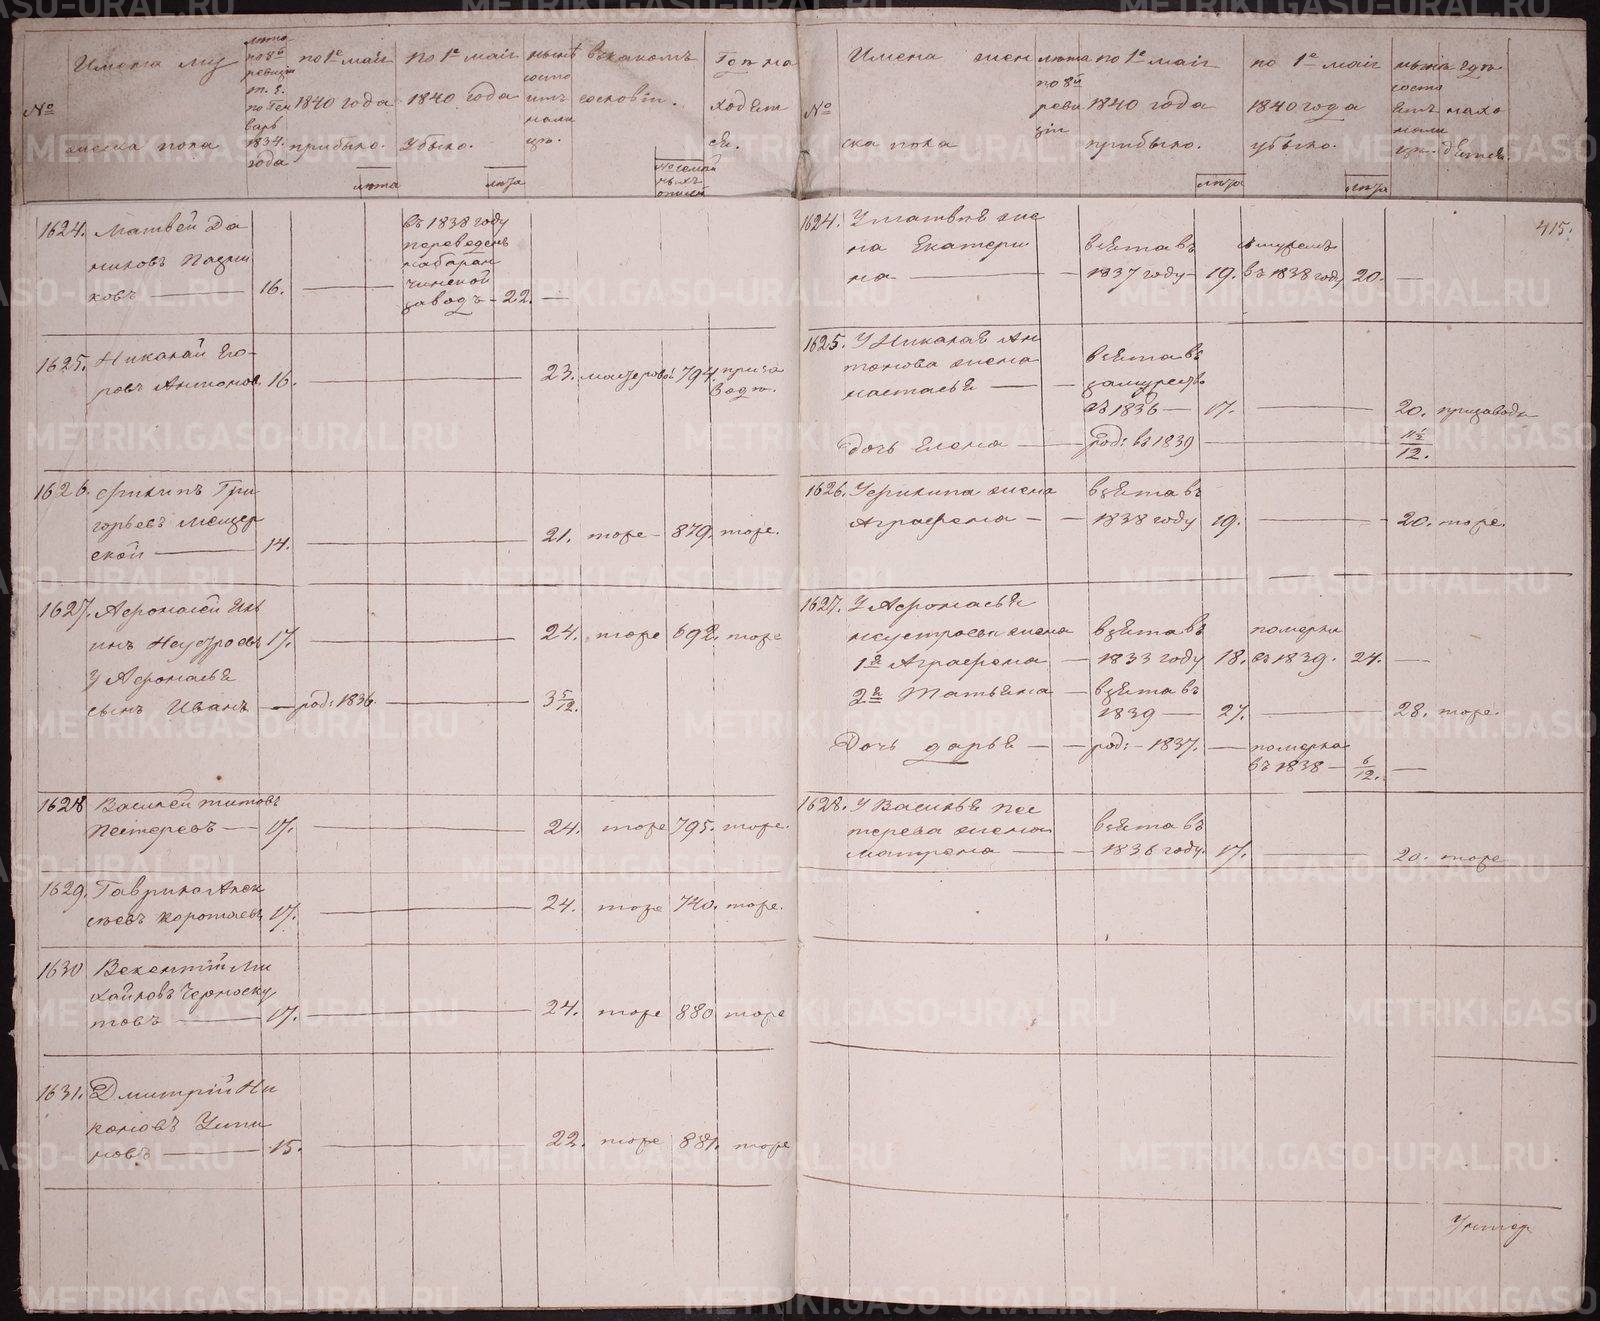 №
Имена му
жеска пола
лѣта
по 8й
ревизіи
т. е.
по Ген
варь
1834.
года
по 1е маія
1840 года
прибыло.
лѣта
по 1е маія
1840 года
убыло.
лѣта
нынѣ
состо
итъ
нали
цо.
въ какомъ
сословіи.
№ семей
ныхъ
списк
Гдѣ на
ходит
ся.
1624. Матвей Да
ниловъ Пазни
ковъ — 16.
въ 1838 году
переведенъ
на Баран
чинской
заводъ — 22. —
1625. Николай Его-
ровъ Антонов 16. — 23. мастеровой 794. при за
водѣ.
1626. Филипъ Гри
горьевъ Мещер
ской — 14. — 21. тоже — 879. тоже.
1627. Афонасей Иль
инъ Неустроевъ 17. — 24. тоже 692. тоже
у Афонасья
сынъ Иванъ — род: 1836. — 3 5/12.
1628 Василей Титовъ
Пестеревъ — 17. — 24. тоже 795. тоже.
1629. Гаврило Алек
сѣевъ Коротаевъ 17. — 24. тоже 740. тоже.
1630 Векентій Ми
хайловъ Черноску
товъ — 17. — 24. тоже 880 тоже
1631. Дмитрій Ни
коновъ Ути
новъ — 15. — 22. тоже 881. тоже
№
Имена жен
ска пола
лѣта
по 8й
реви
зіи
по 1е маія
1840 года
прибыло.
лѣта
по 1е маія
1840 года
убыло.
лѣта
нынѣ
состо
итъ
нали
цо.
гдѣ
нахо
дятся.
415.
1624. У Матвѣя же
на Екатери
на —
взята въ
1837 году — 19.
въ 1838 году 20. —
1625. У Николая Ан
тонова жена
Настасья —
взята въ
замужство
въ 1836 — 17. — 20. при заводѣ
Дочь Елена — род: въ 1839 — 11/12.
1626. У Филипа жена
Аграфена —
взята въ
1838 году 19. — 20. тоже.
1627. У Афонасья
Неустроева жена
1я Аграфена —
взята въ
1833 году 18.
померла
въ 1839. 24. —
2я Татьяна —
взята въ
1839 — 27. — 28. тоже.
Дочь Дарья — род: — 1837. —
померла
въ 1838 — 6/12. —
1628. У Василья Пес
терева жена
Матрена —
взята въ
1836 году. 17. — 20. тоже
METRIKI.GASO-URAL.RU